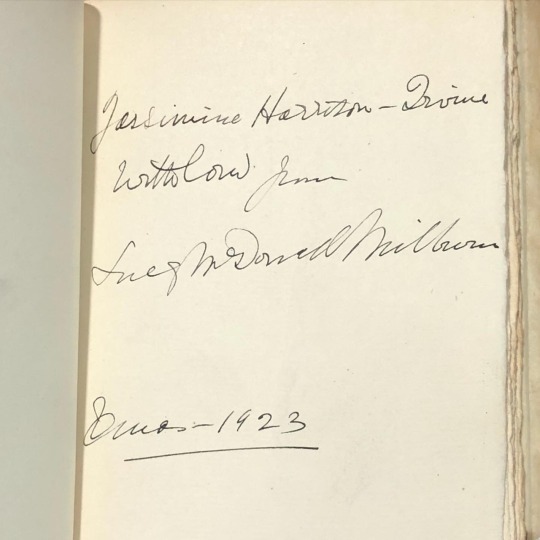 Jassimine Harrison-Irvine
With love from
Lucy McDowell Milburn
Xmas-1923